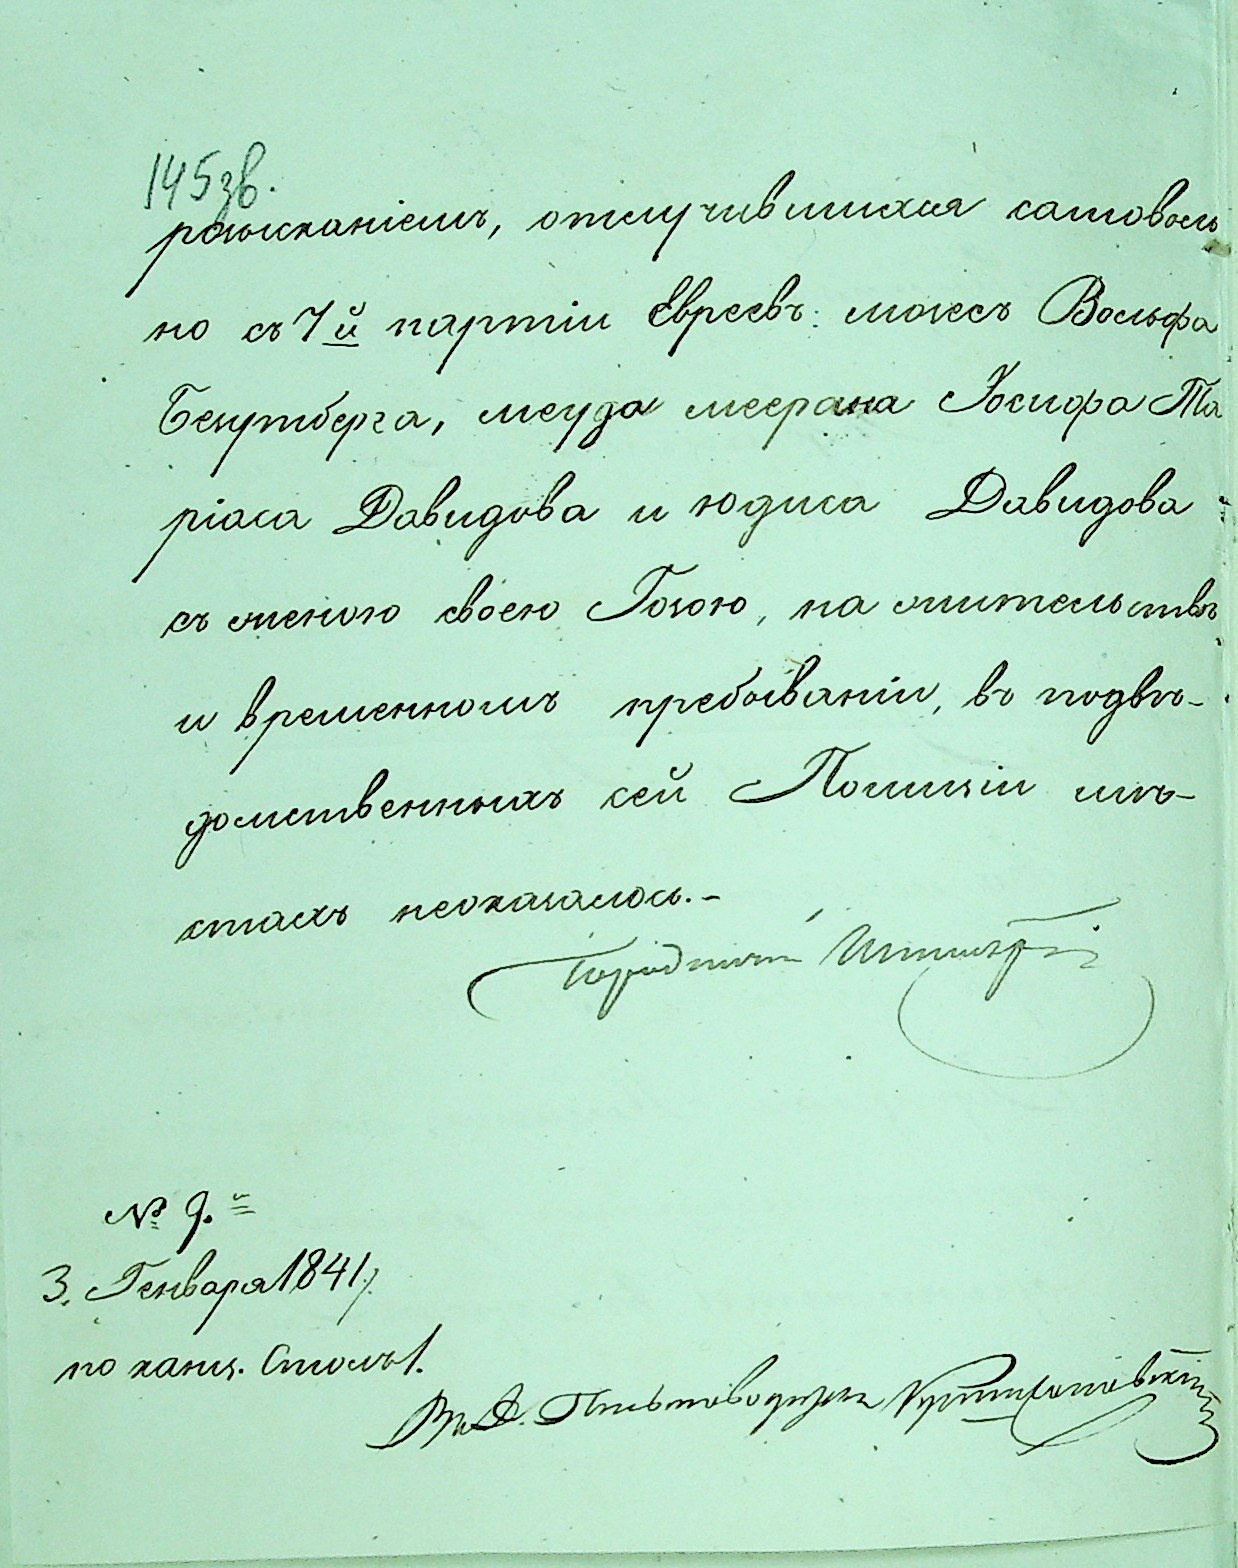 145 зв.
розысканіемъ, отлучившихся самоволь
но съ 7й партіи Евреевъ: мовесъ Вольфа
меуда меерана Іосифа Та
ріаса Давидова и юдиса Давидова
съ женою своею Гозою, на жительствѣ
и временномъ пребываніи, въ подвѣ-
домственныхъ сей Полиціи мѣ-
стахъ неоказалось.-
Городничій
№ 9.
3. Генваря 1841 г.
по канц. Столъ 1.
Письмоводитель